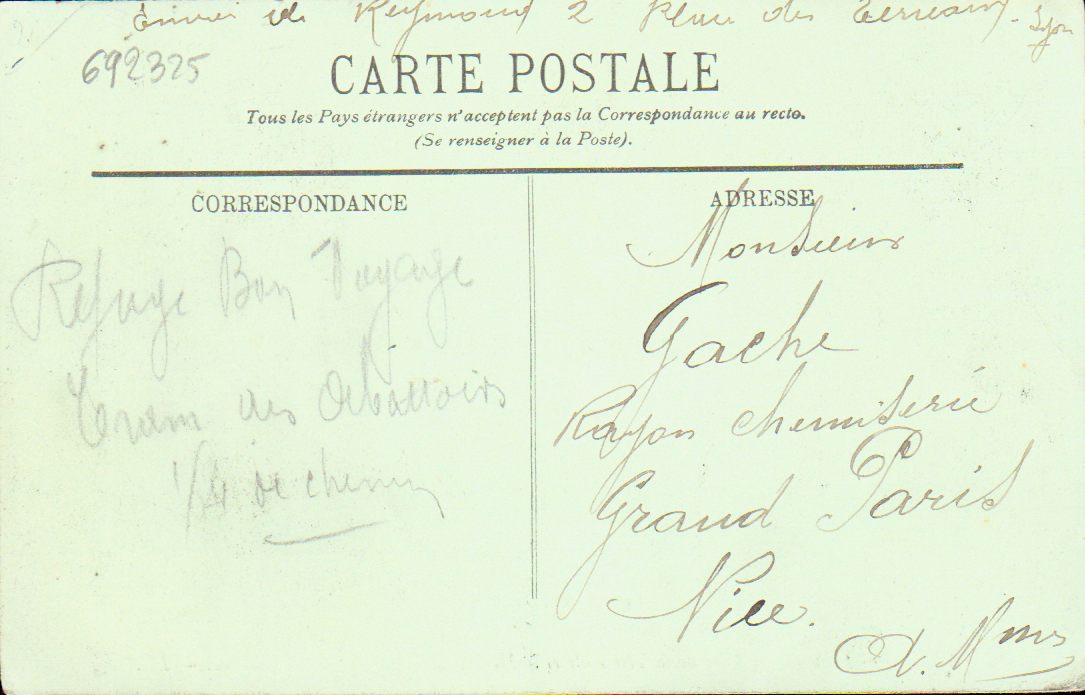 Envoi de Reymond 2 Place des Terreaux. Lyon
692325
CARTE POSTALE
Tous les Pays étrangers n'acceptent pas la Correspondance au recto.
(Se renseigner à la Poste).
CORRESPONDANCE
Refuge Bon Voyage
Tram des Abattoirs
1/4 de chemin
ADRESSE
Monsieur
Gache
Rayon Chemiserie
Grand Paris
Nice.
A. Mmes